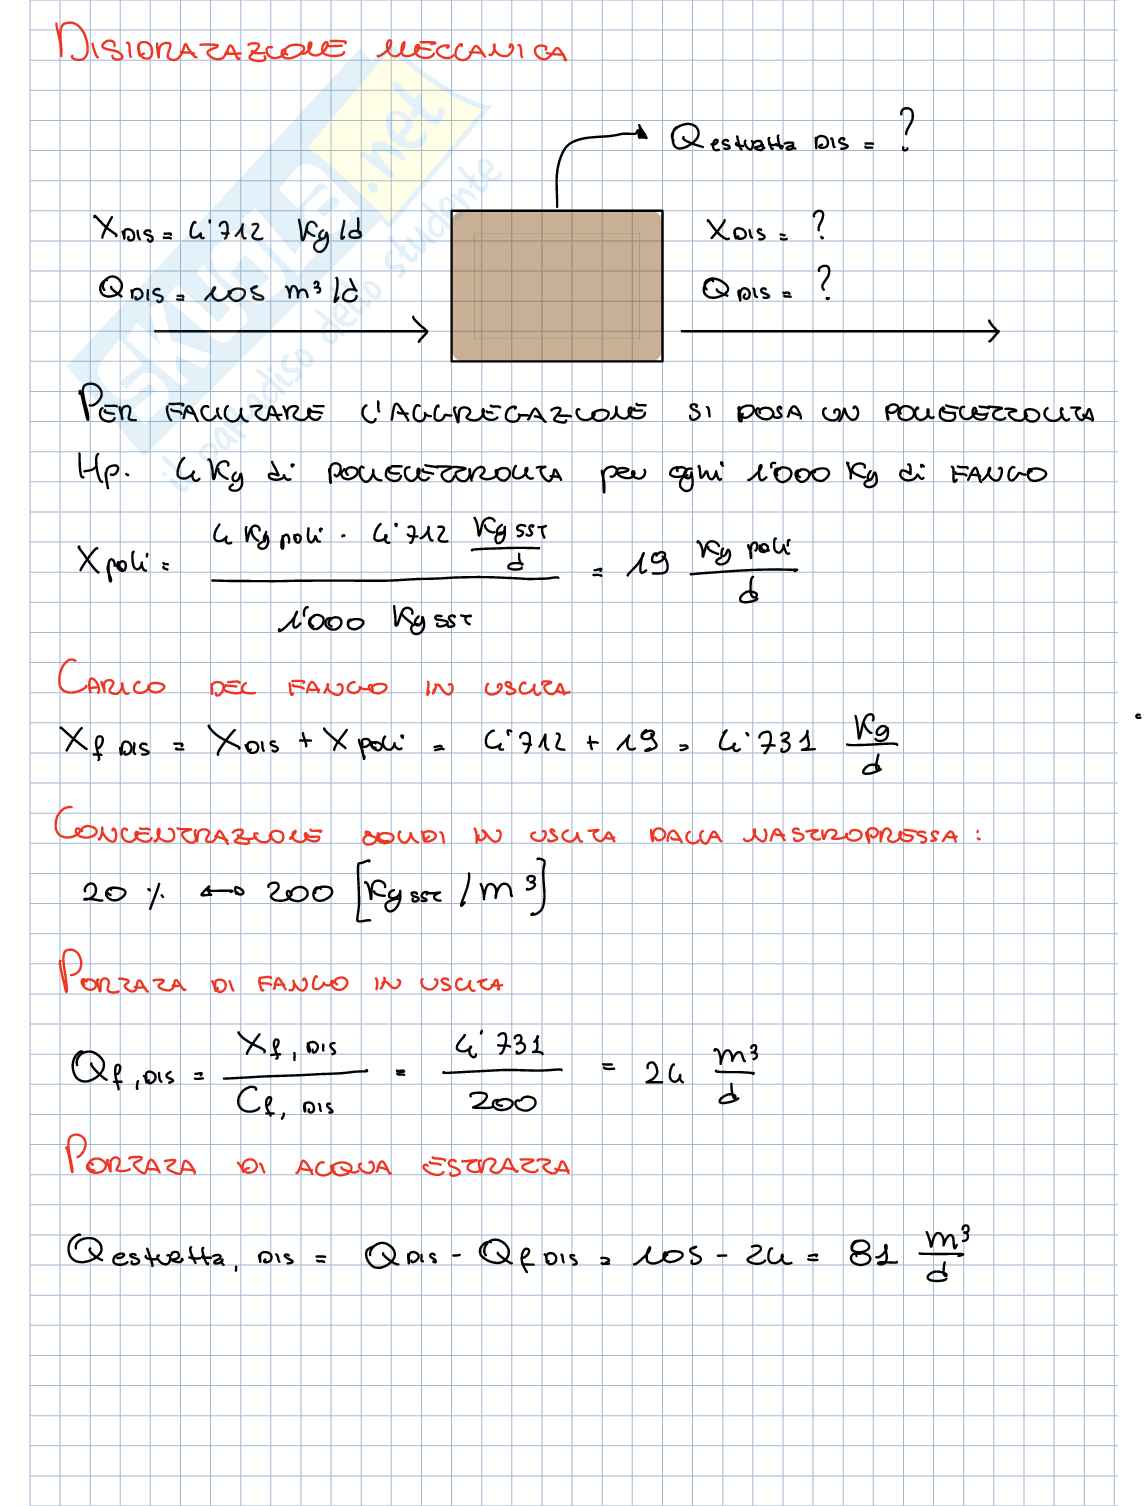 DISIDRATAZIONE MECCANICA
Qestratta DIS = ?
XDIS = 4'712 Kg/d
XDIS = ?
QDIS = 105 m³/d
QDIS = ?
PER FACILITARE L'AGGREGAZIONE SI DOSA UN POLIELETTROLITA
Hp. 4 Kg di POLIELETTROLITA per ogni 1'000 Kg di FANGO
Xpoli = (4 Kg poli · 4'712 Kg SST/d) / (1'000 Kg SST) = 19 Kg poli/d
CARICO DEL FANGO IN USCITA
Xf DIS = XDIS + Xpoli = 4'712 + 19 = 4'731 Kg/d
CONCENTRAZIONE SOLIDI IN USCITA DALLA NASTROPRESSA :
20 % ↔ 200 [Kg SST / m³]
PORTATA DI FANGO IN USCITA
Qf,DIS = Xf,DIS / Cf,DIS = 4'731 / 200 = 24 m³/d
PORTATA DI ACQUA ESTRATTA
Qestratta, DIS = QDIS - Qf DIS = 105 - 24 = 81 m³/d
SKUOLA.net
il paradiso dello studente